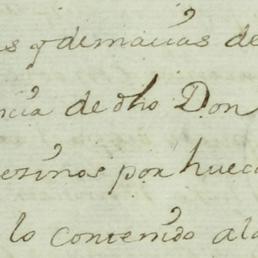 as y demacias de
ncia de dho Don
ezinos por huec
lo contenido ala